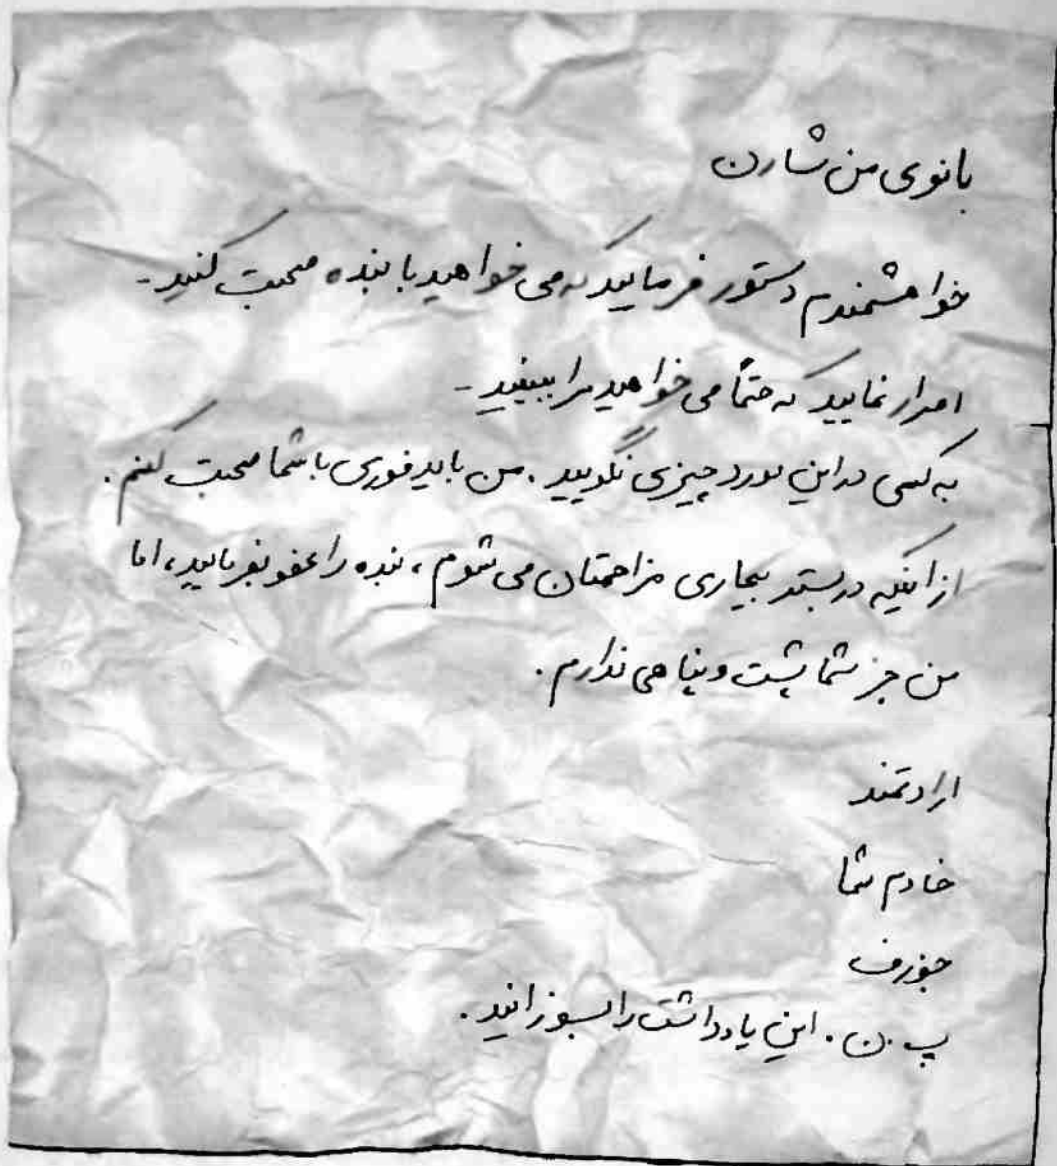 بانوی من شارن
خواهشمندم دستور فرمایید که می خواهید با بنده صحبت کنید -
اصرار نمایید که حتماً می خواهید مرا ببینید -
به کسی در این مورد چیزی نگویید . من باید فوری با شما صحبت کنم .
از اینکه در بستر بیماری مزاحمتان می شوم ، بنده را عفو بفرمایید ، اما
من جز شما پشت و پناهی ندارم .
ارادتمند
خادم شما
جوزف
پ . ن . این یادداشت را بسوزانید .